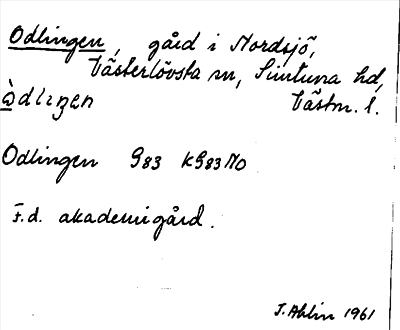 Odlingen, gård i Nordsjö,
Västerlövsta sn, Simtuna hd,
Västm. l.
ὼdlıŋen
Odlingen G83 KG83NO
F.d. akademigård.
J. Ahlin 1961